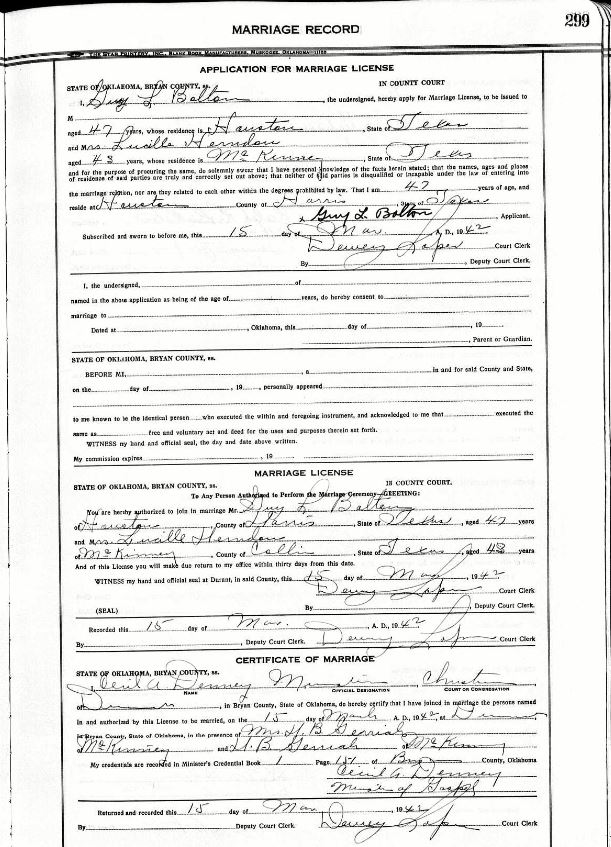 299
MARRIAGE RECORD
THE BRYAN PRINTERY, INC., BLANK BOOK MANUFACTURERS, MUSKOGEE, OKLAHOMA
APPLICATION FOR MARRIAGE LICENSE
STATE OF OKLAHOMA, BRYAN COUNTY, ss. IN COUNTY COURT
I, Guy L Bolton, the undersigned, hereby apply for Marriage License, to be issued to
M
aged 47 years, whose residence is Houston, State of Texas
and Mrs. Lucille Herndon
aged 43 years, whose residence is McKinney, State of Texas
and for the purpose of procuring the same, do solemnly swear that I have personal knowledge of the facts herein stated; that the names, ages and places
of residence of said parties are truly and correctly set out above; that neither of said parties is disqualified or incapable under the law of entering into
the marriage relation, nor are they related to each other within the degrees prohibited by law. That I am 47 years of age, and
reside at Houston County of Harris State of Texas
x Guy L Bolton Applicant.
Subscribed and sworn to before me, this 15 day of Mar. A. D., 1942
Dewey Loper Court Clerk
By , Deputy Court Clerk.
I, the undersigned, of
named in the above application as being of the age of years, do hereby consent to
marriage to
Dated at , Oklahoma, this day of , 19
, Parent or Guardian.
STATE OF OKLAHOMA, BRYAN COUNTY, ss.
BEFORE ME, , a in and for said County and State,
on the day of , 19 , personally appeared
to me known to be the identical person who executed the within and foregoing instrument, and acknowledged to me that executed the
same as free and voluntary act and deed for the uses and purposes therein set forth.
WITNESS my hand and official seal, the day and date above written.
My commission expires , 19
MARRIAGE LICENSE
STATE OF OKLAHOMA, BRYAN COUNTY, ss. IN COUNTY COURT.
To Any Person Authorized to Perform the Marriage Ceremony—GREETING:
You are hereby authorized to join in marriage Mr. Guy L Bolton
of Houston, County of Harris, State of Texas, aged 47 years
and Mrs Lucille Herndon
of McKinney, County of Collin, State of Texas aged 43 years
And of this License you will make due return to my office within thirty days from this date.
WITNESS my hand and official seal at Durant, in said County, this 15 day of Mar, 1942
Dewey Loper Court Clerk
By , Deputy Court Clerk.
(SEAL)
Recorded this 15 day of Mar., A. D., 1942
By , Deputy Court Clerk. Dewey Loper Court Clerk
CERTIFICATE OF MARRIAGE
STATE OF OKLAHOMA, BRYAN COUNTY, ss.
I, Cecil A Denney Minister Christian
NAME OFFICIAL DESIGNATION COURT OR CONGREGATION
of Durant, in Bryan County, State of Oklahoma, do hereby certify that I have joined in marriage the persons named
in and authorized by this License to be married, on the 15 day of March A. D., 1942 at Durant
in Bryan County, State of Oklahoma, in the presence of Mrs. H. B.
of McKinney and H. B. of McKinney
My credentials are recorded in Minister's Credential Book 1 Page 151 of Bryan County, Oklahoma
Cecil A. Denney
Minister of Gospel
Returned and recorded this 15 day of Mar, 1942
By Deputy Court Clerk. Dewey Loper Court Clerk